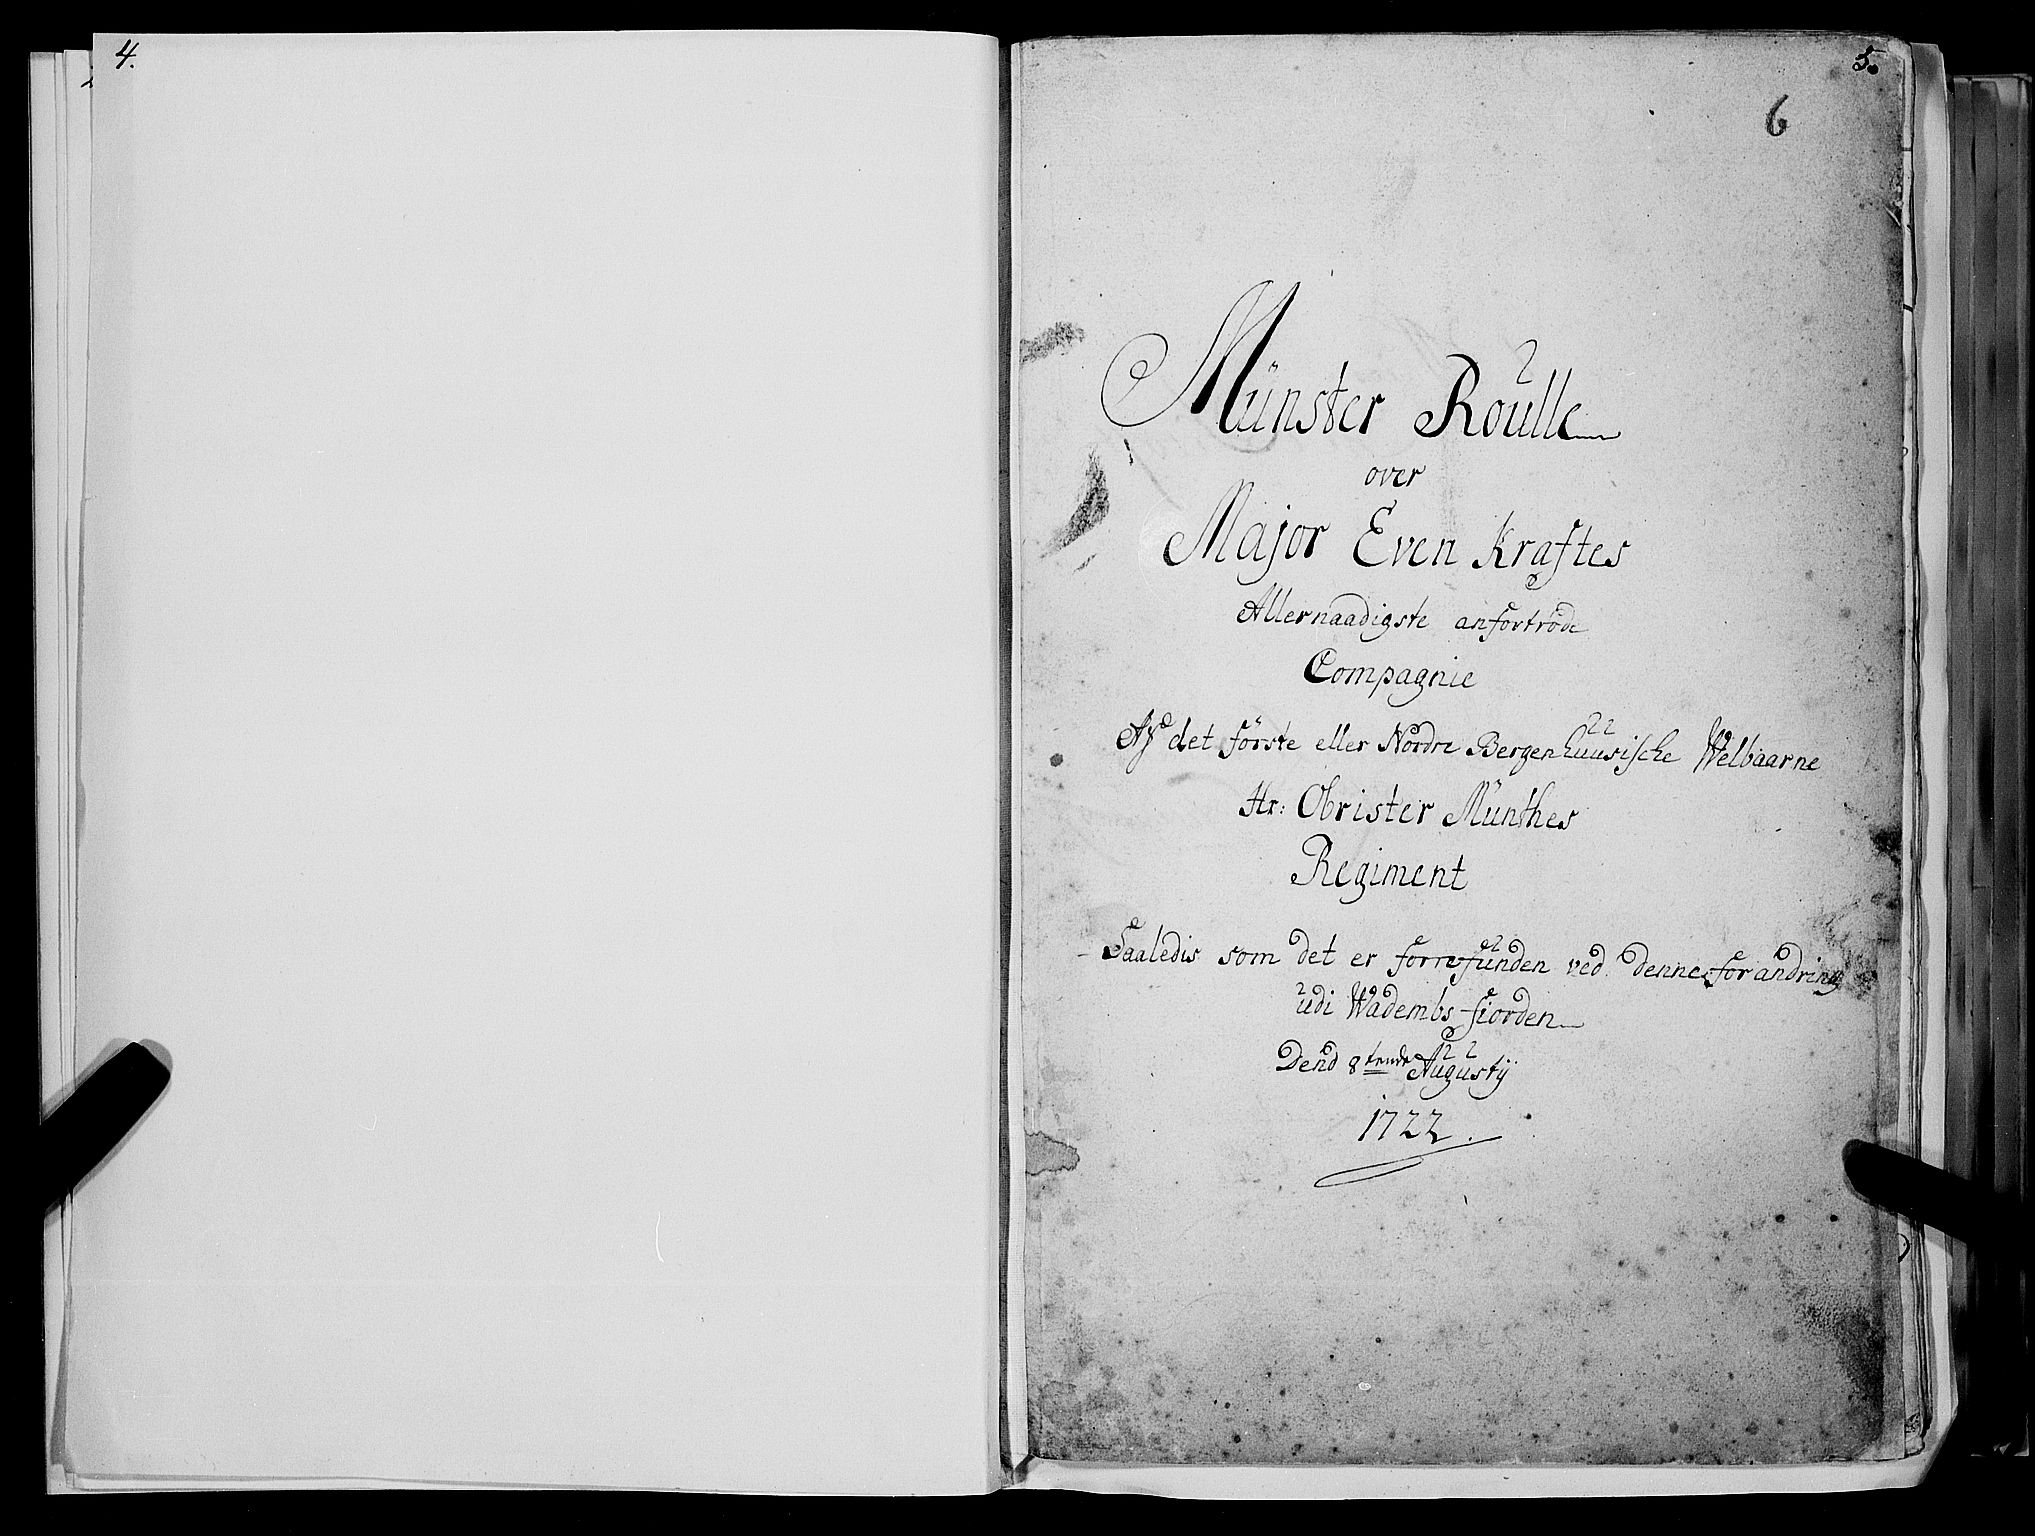 4.
5.
6
Münster Roulle
over
Major Even Kraftes
Allernaadigste anfortrode
Compagnie
Af det förste eller Nordre Bergenhuusische Welbaarne
Hr: Obrister Münthes
Regiment
Saaledis som det er forrefunden ved denne forandring
udi Wadembs fiorden
Dend 8tende Augustij
1722.